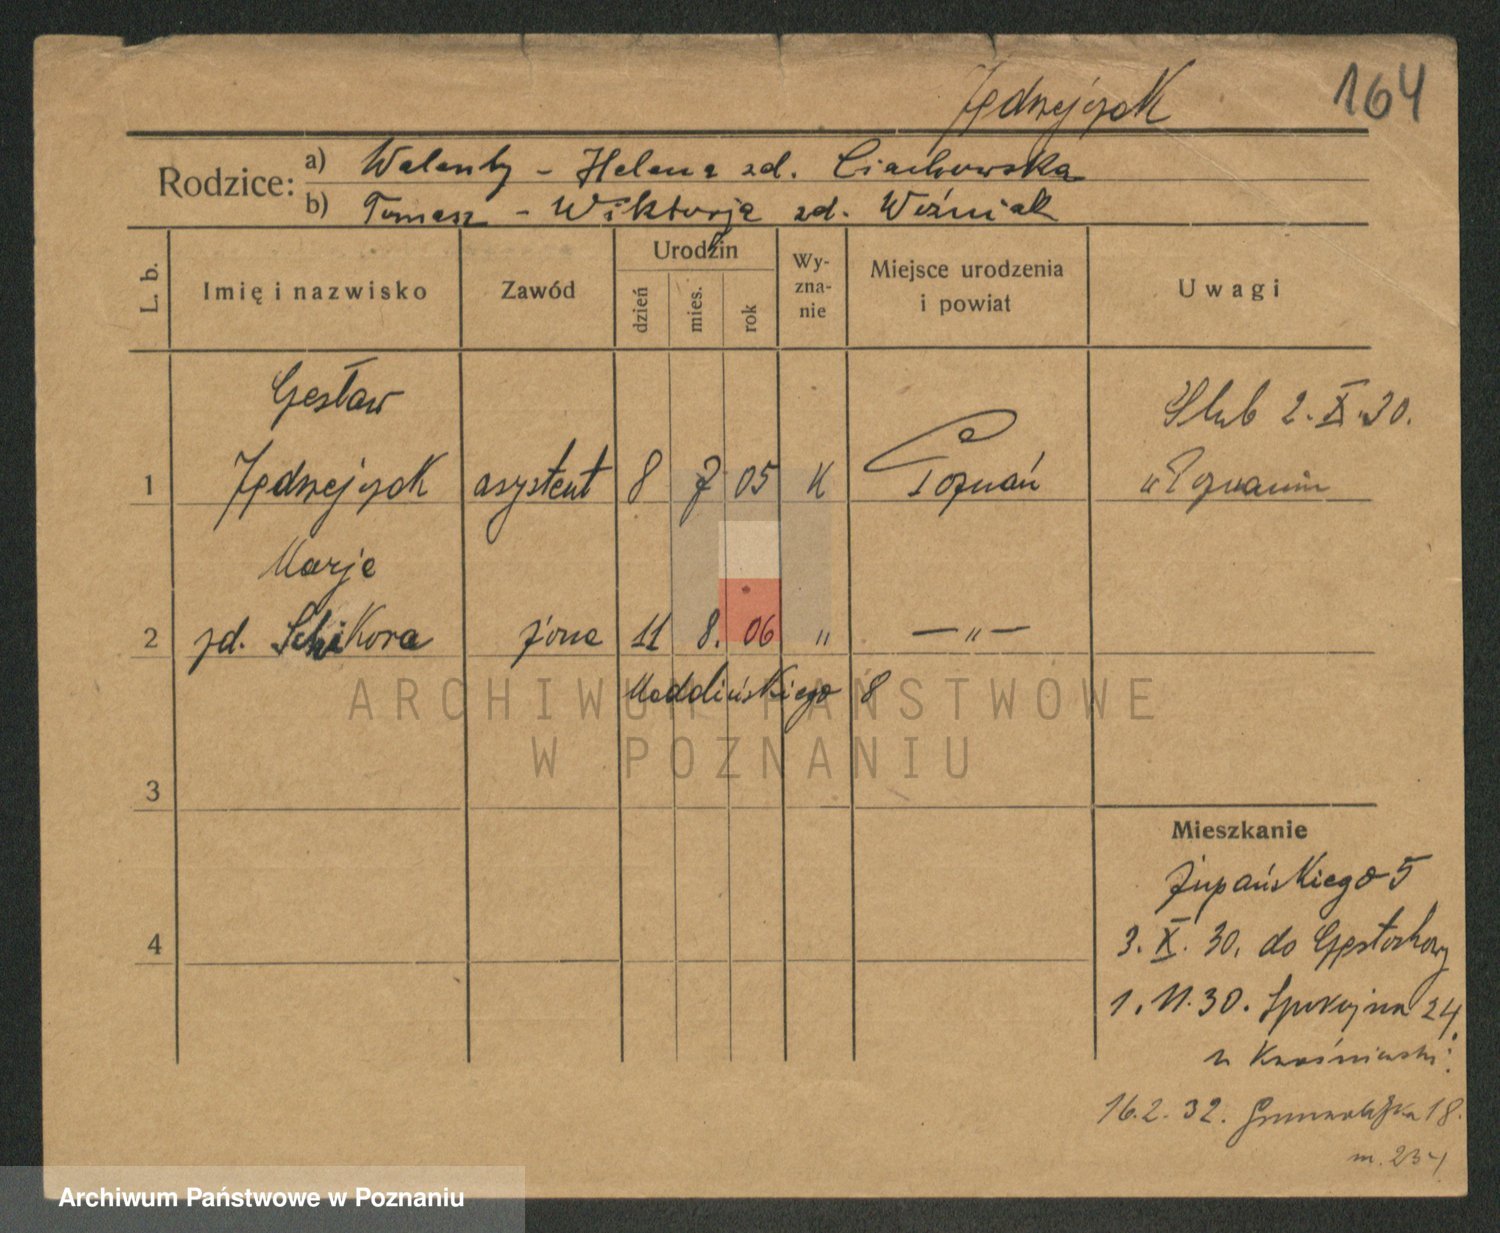 Jędrzejczak
164
Rodzice:
a) Walenty - Helena zd. Ciachowska
b) Tomasz - Wiktorja zd. Woźniak
L. b.
Imię i nazwisko
Zawód
Urodzin
dzień
mies.
rok
Wy-
zna-
nie
Miejsce urodzenia
i powiat
Uwagi
Czesław
Ślub 2.X.30.
1 Jędrzejczak asystent 8 7 05 K Poznań w Poznaniu
Marja
2 zd. Schikora żona 11 8. 06 " — " —
8
ARCHIWUM PAŃSTWOWE
W POZNANIU
3
Mieszkanie
Żupańskiego 5
4
3. X. 30. do Częstochowy
1. 11. 30. Spokojna 24.
u
16. 2. 32. 18.
m. 234
Archiwum Państwowe w Poznaniu